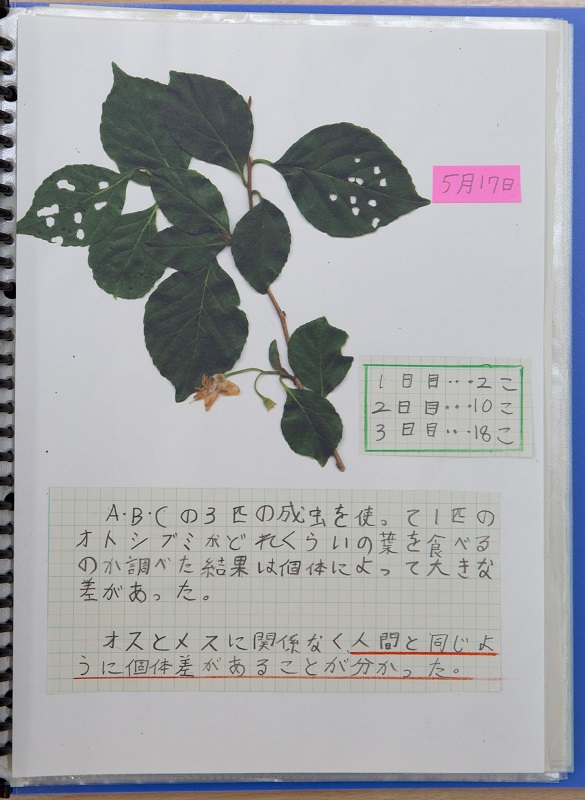 5月17日
1日目…2こ
2日目…10こ
3日目…18こ
A・B・Cの3匹の成虫を使って1匹の
オトシブミがどれくらいの葉を食べる
のか調べた結果は個体によって大きな
差があった。
オスとメスに関係なく、人間と同じよ
うに個体差があることが分かった。